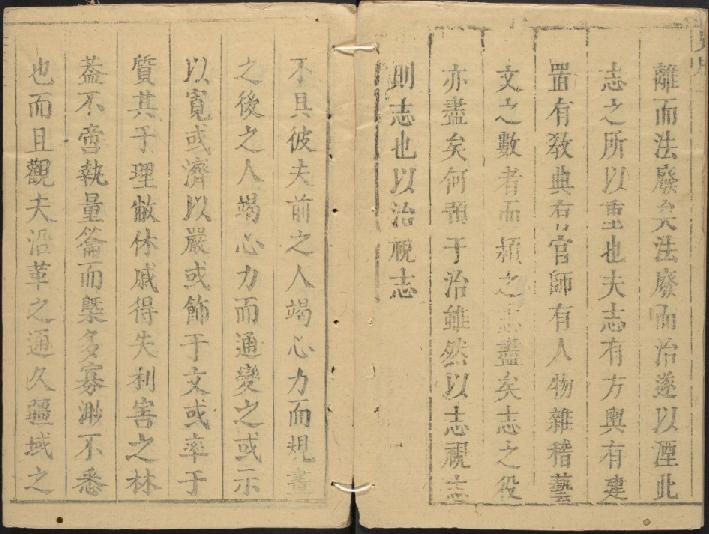 離而法廢矣法廢而治遂以湮此
志之所以重也夫志有方輿有建
置有教典有官師有人物雜稽藝
文之數者而類之志盡矣志之役
亦盡矣何預于治雖然以志視志
則志也以治視志
不具彼夫前之人竭心力而規畫
之後之人竭心力而通變之或示
以寬或濟以嚴或飾于文或率于
質其于理敝休戚得失利害之林
葢不啻執量籥而槩多寡渺不悉
也而且觀夫沿革之通久疆域之